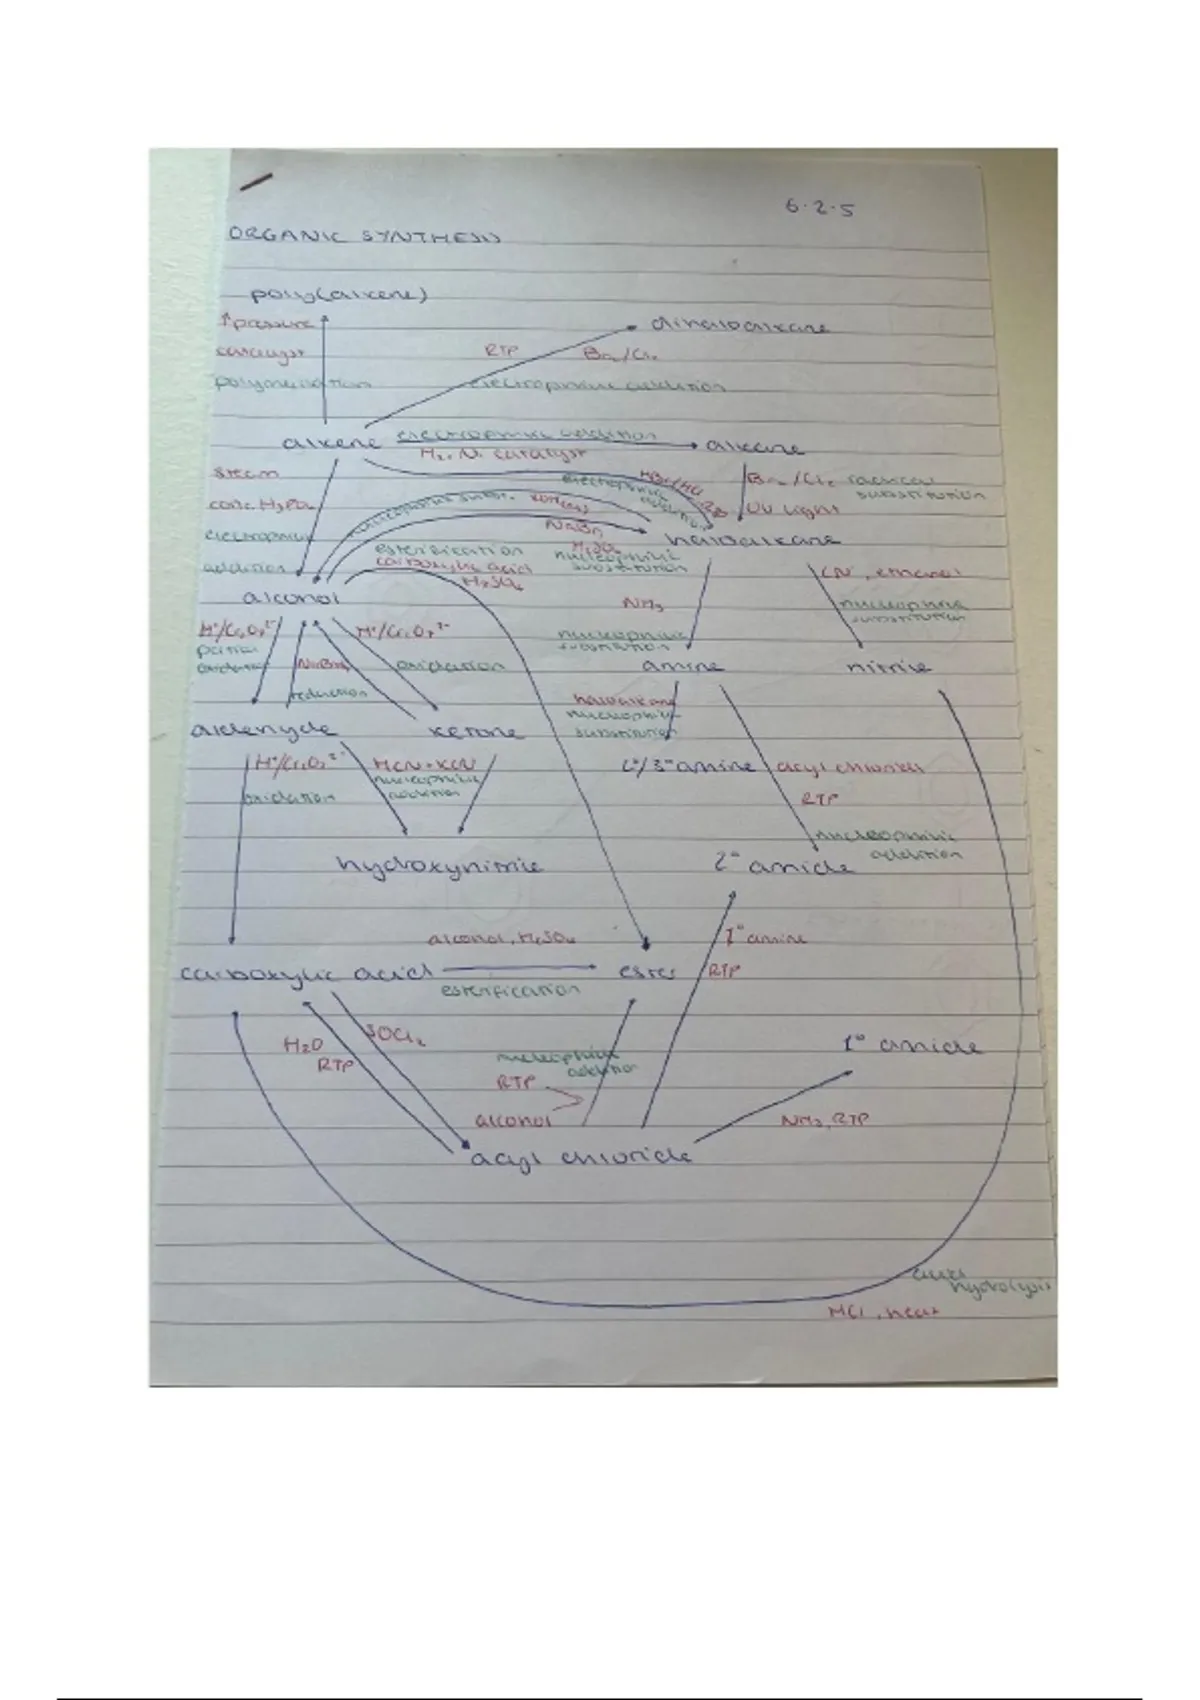 6.2.5
ORGANIC SYNTHESIS
poly(alkene)
↑pressure
catalyst
polymerisation
dihaloalkane
RTP
Br₂/Cl₂
electrophilic addition
alkene
electrophilic addition
H₂, Ni catalyst
alkane
steam
conc. H₃PO₄
electrophilic
addition
HBr/HCl
RTP
electrophilic
addition
Br₂/Cl₂ radical
substitution
UV light
nucleophilic subst.
NaBr
H₂SO₄
nucleophilic
substitution
haloalkane
esterification
carboxylic acid
H₂SO₄
CN⁻, ethanol
nucleophilic
substitution
alcohol
NH₃
nucleophilic
substitution
H⁺/Cr₂O₇²⁻
partial
oxidation
NaBH₄
reduction
H⁺/Cr₂O₇²⁻
oxidation
amine
nitrile
haloalkane
nucleophilic
substitution
aldehyde
ketone
H⁺/Cr₂O₇²⁻
oxidation
HCN + KCN
nucleophilic
addition
2°/3° amine
acyl chloride
RTP
nucleophilic
addition
hydroxynitrile
2° amide
alcohol, H₂SO₄
1° amine
RTP
carboxylic acid
esterification
ester
H₂O
RTP
SOCl₂
nucleophilic
addition
RTP
alcohol
1° amide
NH₃, RTP
acyl chloride
acid
hydrolysis
HCl, heat